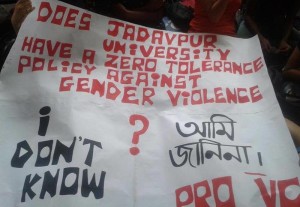 DOES JADAVPUR
UNIVERSITY
HAVE A ZERO TOLERANCE
POLICY AGAINST
GENDER VIOLENCE
?
I
DON'T
KNOW
আমি
জানিনা।
PRO VC